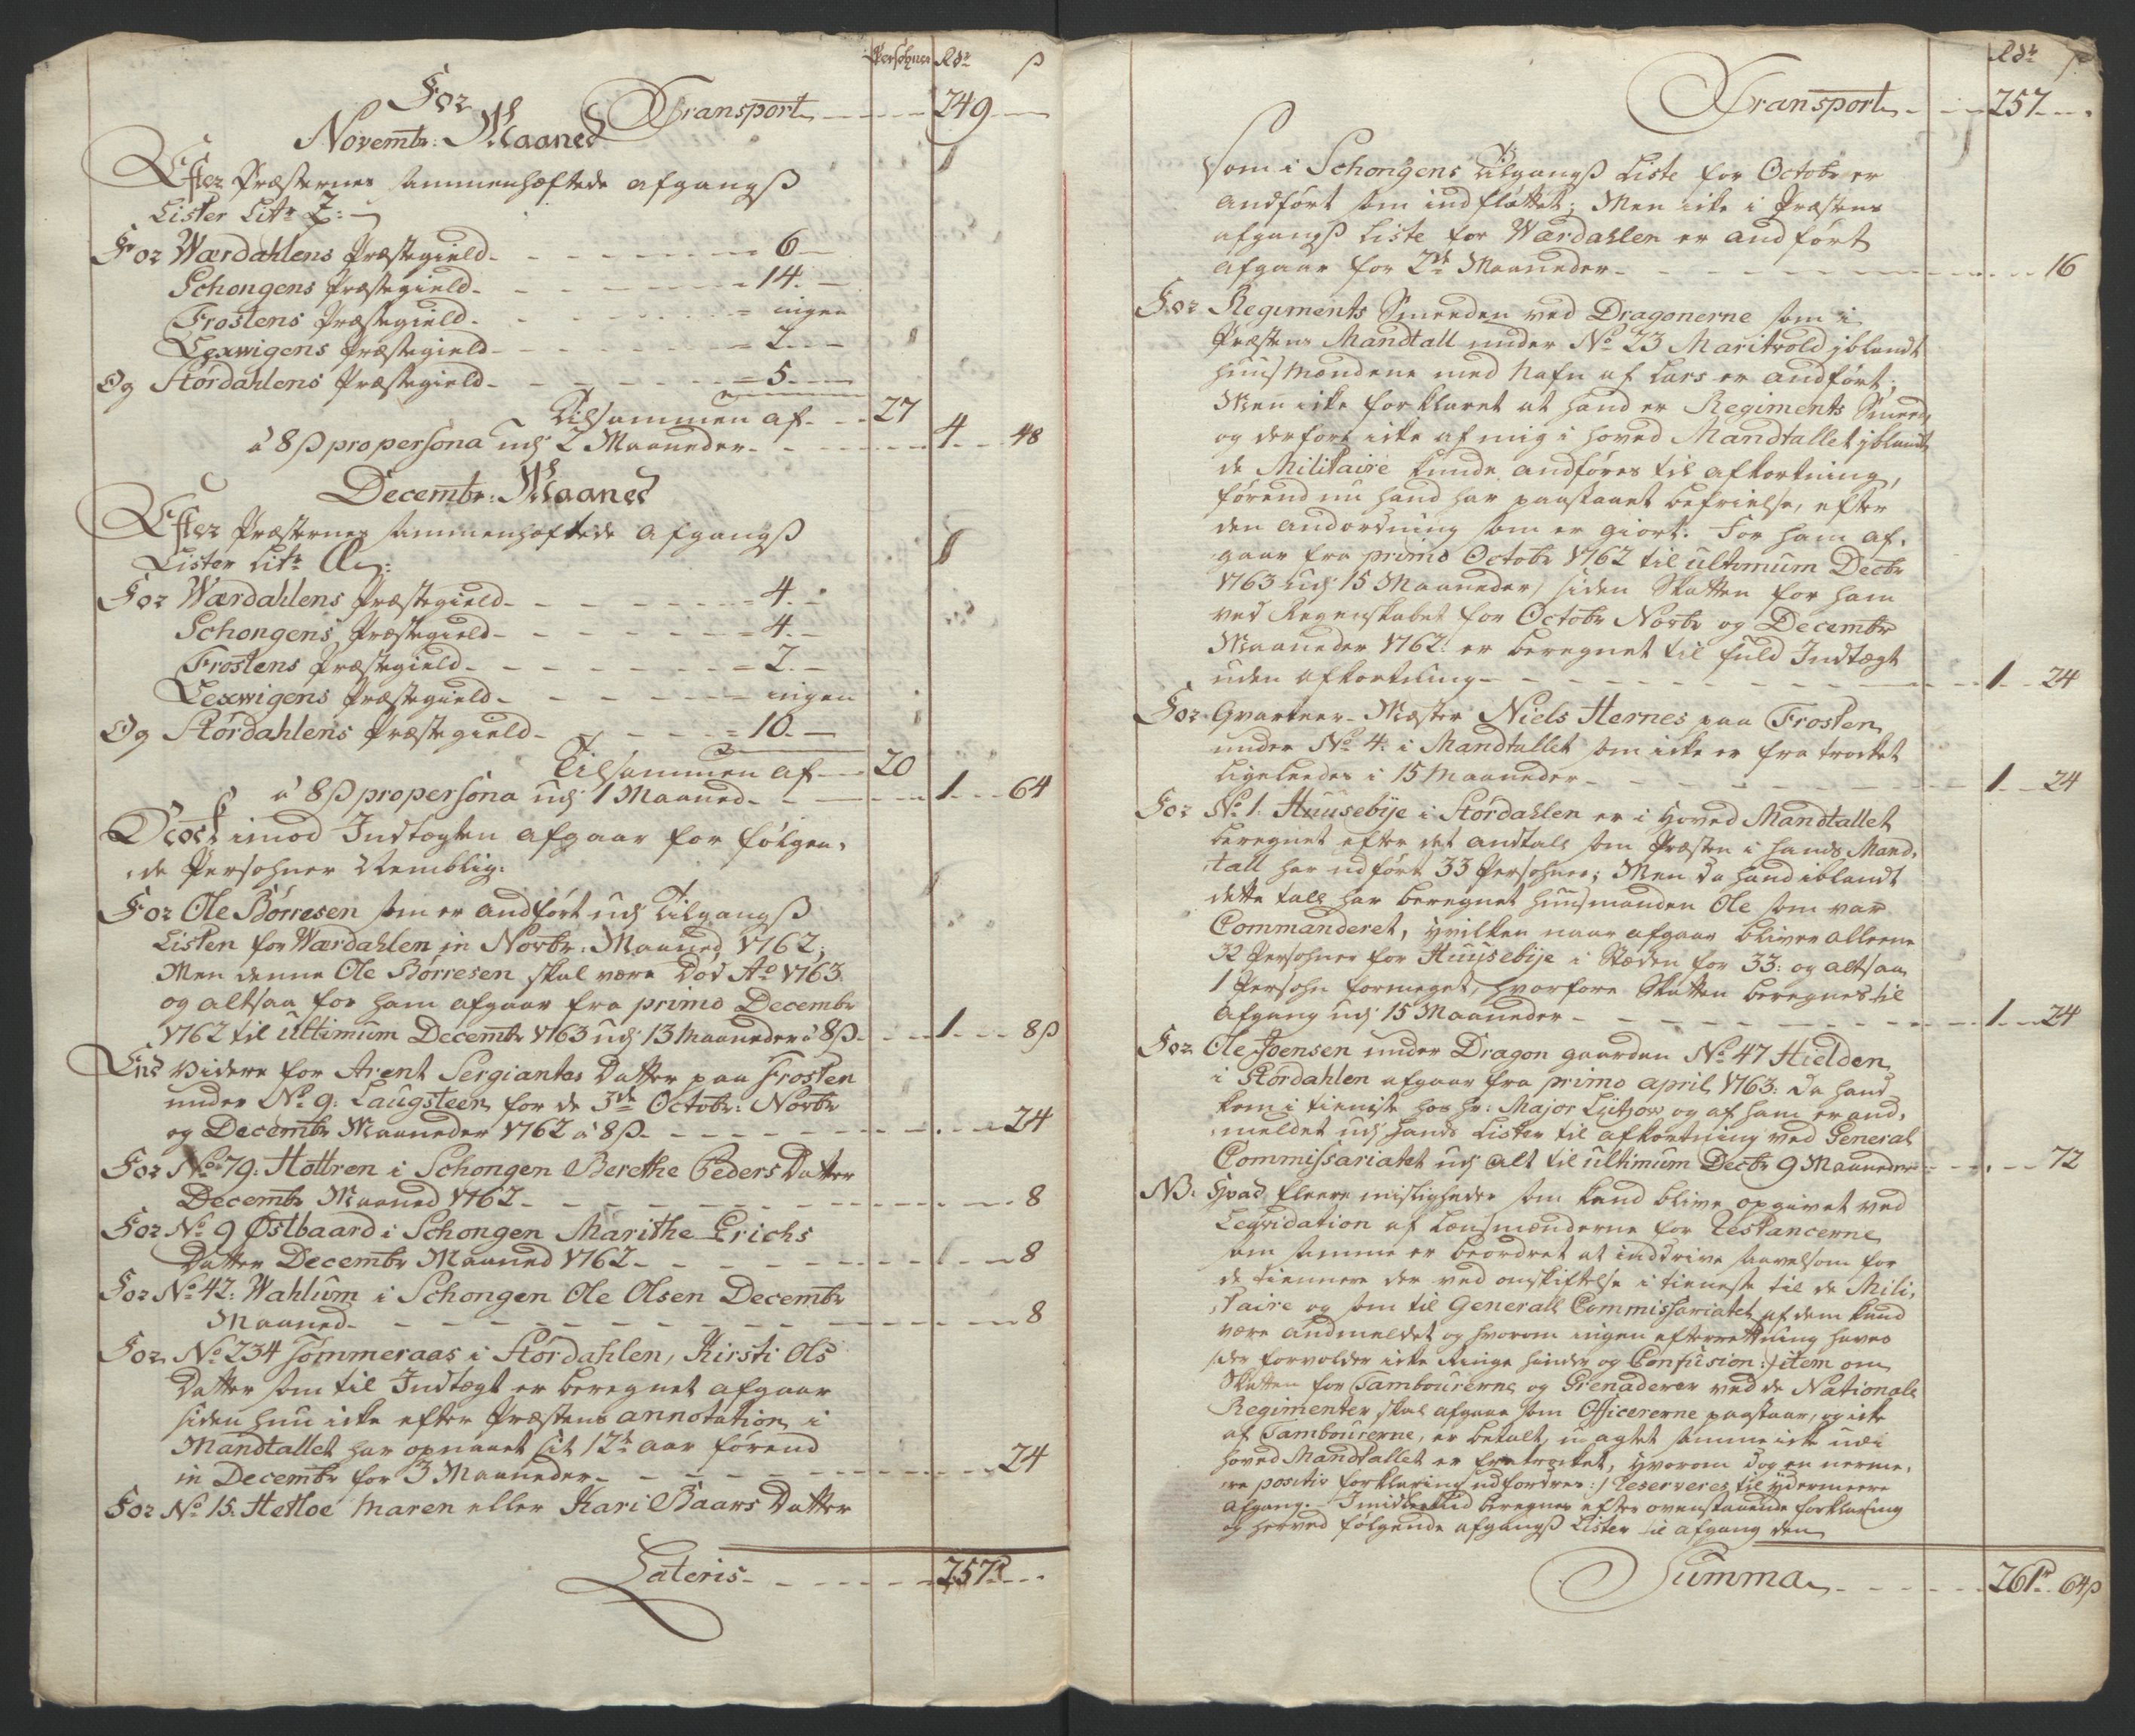 Persohner Rdr ß
For
Transport 249
Novembr: Maaned
Efter Præsternes sammenhæftede afgangs
Lister Litr Z:
For Wærdahlens Præstegield 6
Schongens Præstegield 14
Frostens Præstegield ingen
Lexwigens Præstegield 2
Og Størdahlens Præstegield 5
Tilsammen af 27
a 8 ß pro persona udj 2 Maaneder 4 48
Decembr: Maaned
Efter Præsternes sammenhæftede afgangs
Lister Litr Æ:
For Wærdahlens Præstegield 4
Schongens Præstegield 4
Frostens Præstegield 2
Lexwigens Præstegield ingen
Og Størdahlens Præstegield 10
Tilsammen af 20
a 8 ß pro persona udj 1 Maaned 1 64
Dog imod Indtægten afgaar for følgen,
de Persohner Nemblig:
For Ole Börresen som er andført udj Tilgangs
Listen for Wærdahlen in Novbr: Maaned 1762,
Men denne Ole Börresen skal være Død Ao 1763
og altsaa for ham afgaar fra primo Decembr
1762 til ultimum Decembr 1763 udj 13 Maaneder a 8 ß 1 8 ß
End Videre for Arent Sergiantes Datter paa Frosten
under No 9: Laugsteen for de 3de Octobr: Novbr
og Decembr Maaneder 1762 a 8 ß 24
For No 79: Hottren i Schongen Berethe Peders Datter
Decembr Maaned 1762 8
For No 9 Østbaard i Schongen Marithe Erichs
Datter Decembr Maaned 1762 8
For No 42: Wahlum i Schongen Ole Olsen Decembr
Maaned 8
For No 234 Sommeraas i Størdahlen, Kirsti Ols
Datter som til Indtægt er beregnet afgaar
siden hun icke efter Præstens annotation i
Mandtallet har opnaaet sit 12te aar førend
in Decembr for 3 Maaneder 24
For No 15: Hetloe Maren eller Kari Baars Datter
Lateris 257 r
Rdr ß
Transport 257
som i Schongens Tilgangs Liste for Octobr er
andført som indfløttet; Men icke i Præstens
afgangs Liste for Wærdahlen er andført
afgaar for 2de Maaneder 16
For Regiments Smeeden ved Dragonerne som i
Præstens Mandtall under No 23 Maritvold jblandt
Huusmændene med Nafn af Lars er andført;
Men icke forklaret at hand er Regiments Smeed,
og derfore icke af mig i Hoved Mandtallet jblandt
de Militaire kunde andføres til afkortning,
førend nu hand har paastaaet befrielse, efter
den andordning som er giort. For ham af,
gaar fra primo Octobr 1762 til ultimum Decbr
1763 udj 15 Maaneder, siden Skatten for ham
ved Regenskabet for Octobr Novbr og Decembr
Maaneder 1762: er beregnet til fuld Indtægt
uden afkortning 1 24
For Qvarteer-Mæster Niels Hernes paa Frosten
under No 4: i Mandtallet som icke er fra trocket
ligeleedes i 15 Maaneder 1 24
For No 1. Huusebye i Størdahlen er i Hoved Mandtallet
beregnet efter det andtall som Præsten i hands Mand,
tall har udført 33 Persohner; Men da hand iblandt
dette tall har beregnet Huusmanden Ole som var
Commanderet, hvilken naar afgaar bliver alleene
32 Persohner for Huusebye i Stæden for 33: og altsaa
1 Persohn formeget, hvorfore Skatten beregnes til
afgang udj 15 Maaneder 1 24
For Ole Joensen under Dragon gaarden No 47 Hielden
i Størdahlen afgaar fra primo april 1763: da hand
kom i tieniste hos Hr: Major Lützow og af ham er and,
meldet udj hands Lister til afkortning ved General
Commissariatet udj alt til ultimum Decbr 9 Maaneder 72
NB. Hvad fleere misligheder som kand blive opgivet ved
Leqvidation af Lænsmænderne for Restancerne
om samme er beordret at inddrive saavelsom for
de tiennere der ved omskiftelse i tieneste til de Mili,
taire og som til Generall Commissariatet af dem kand
være andmeldet og hvorom ingen efterretning haves
/:der forvolder icke Ringe hinder og Confusion:/ item om
Skatten for Tambourerne og Grenaderer ved de Nationale
Regimenter skal afgaae som Officererne paastaar, og icke
at Tambourerne, er betalt, uagtet samme icke udi
Hoved Mandtallet er fratrocket, hvorom dog en nerme,
re positiv forklaring udfordres:/ Reserveres til ydermeere
afgang. Imidlertiid beregnes efter ovenstaaende forklaring
og herved følgende afgangs Lister til afgang den
Summa 261 r 64 ß